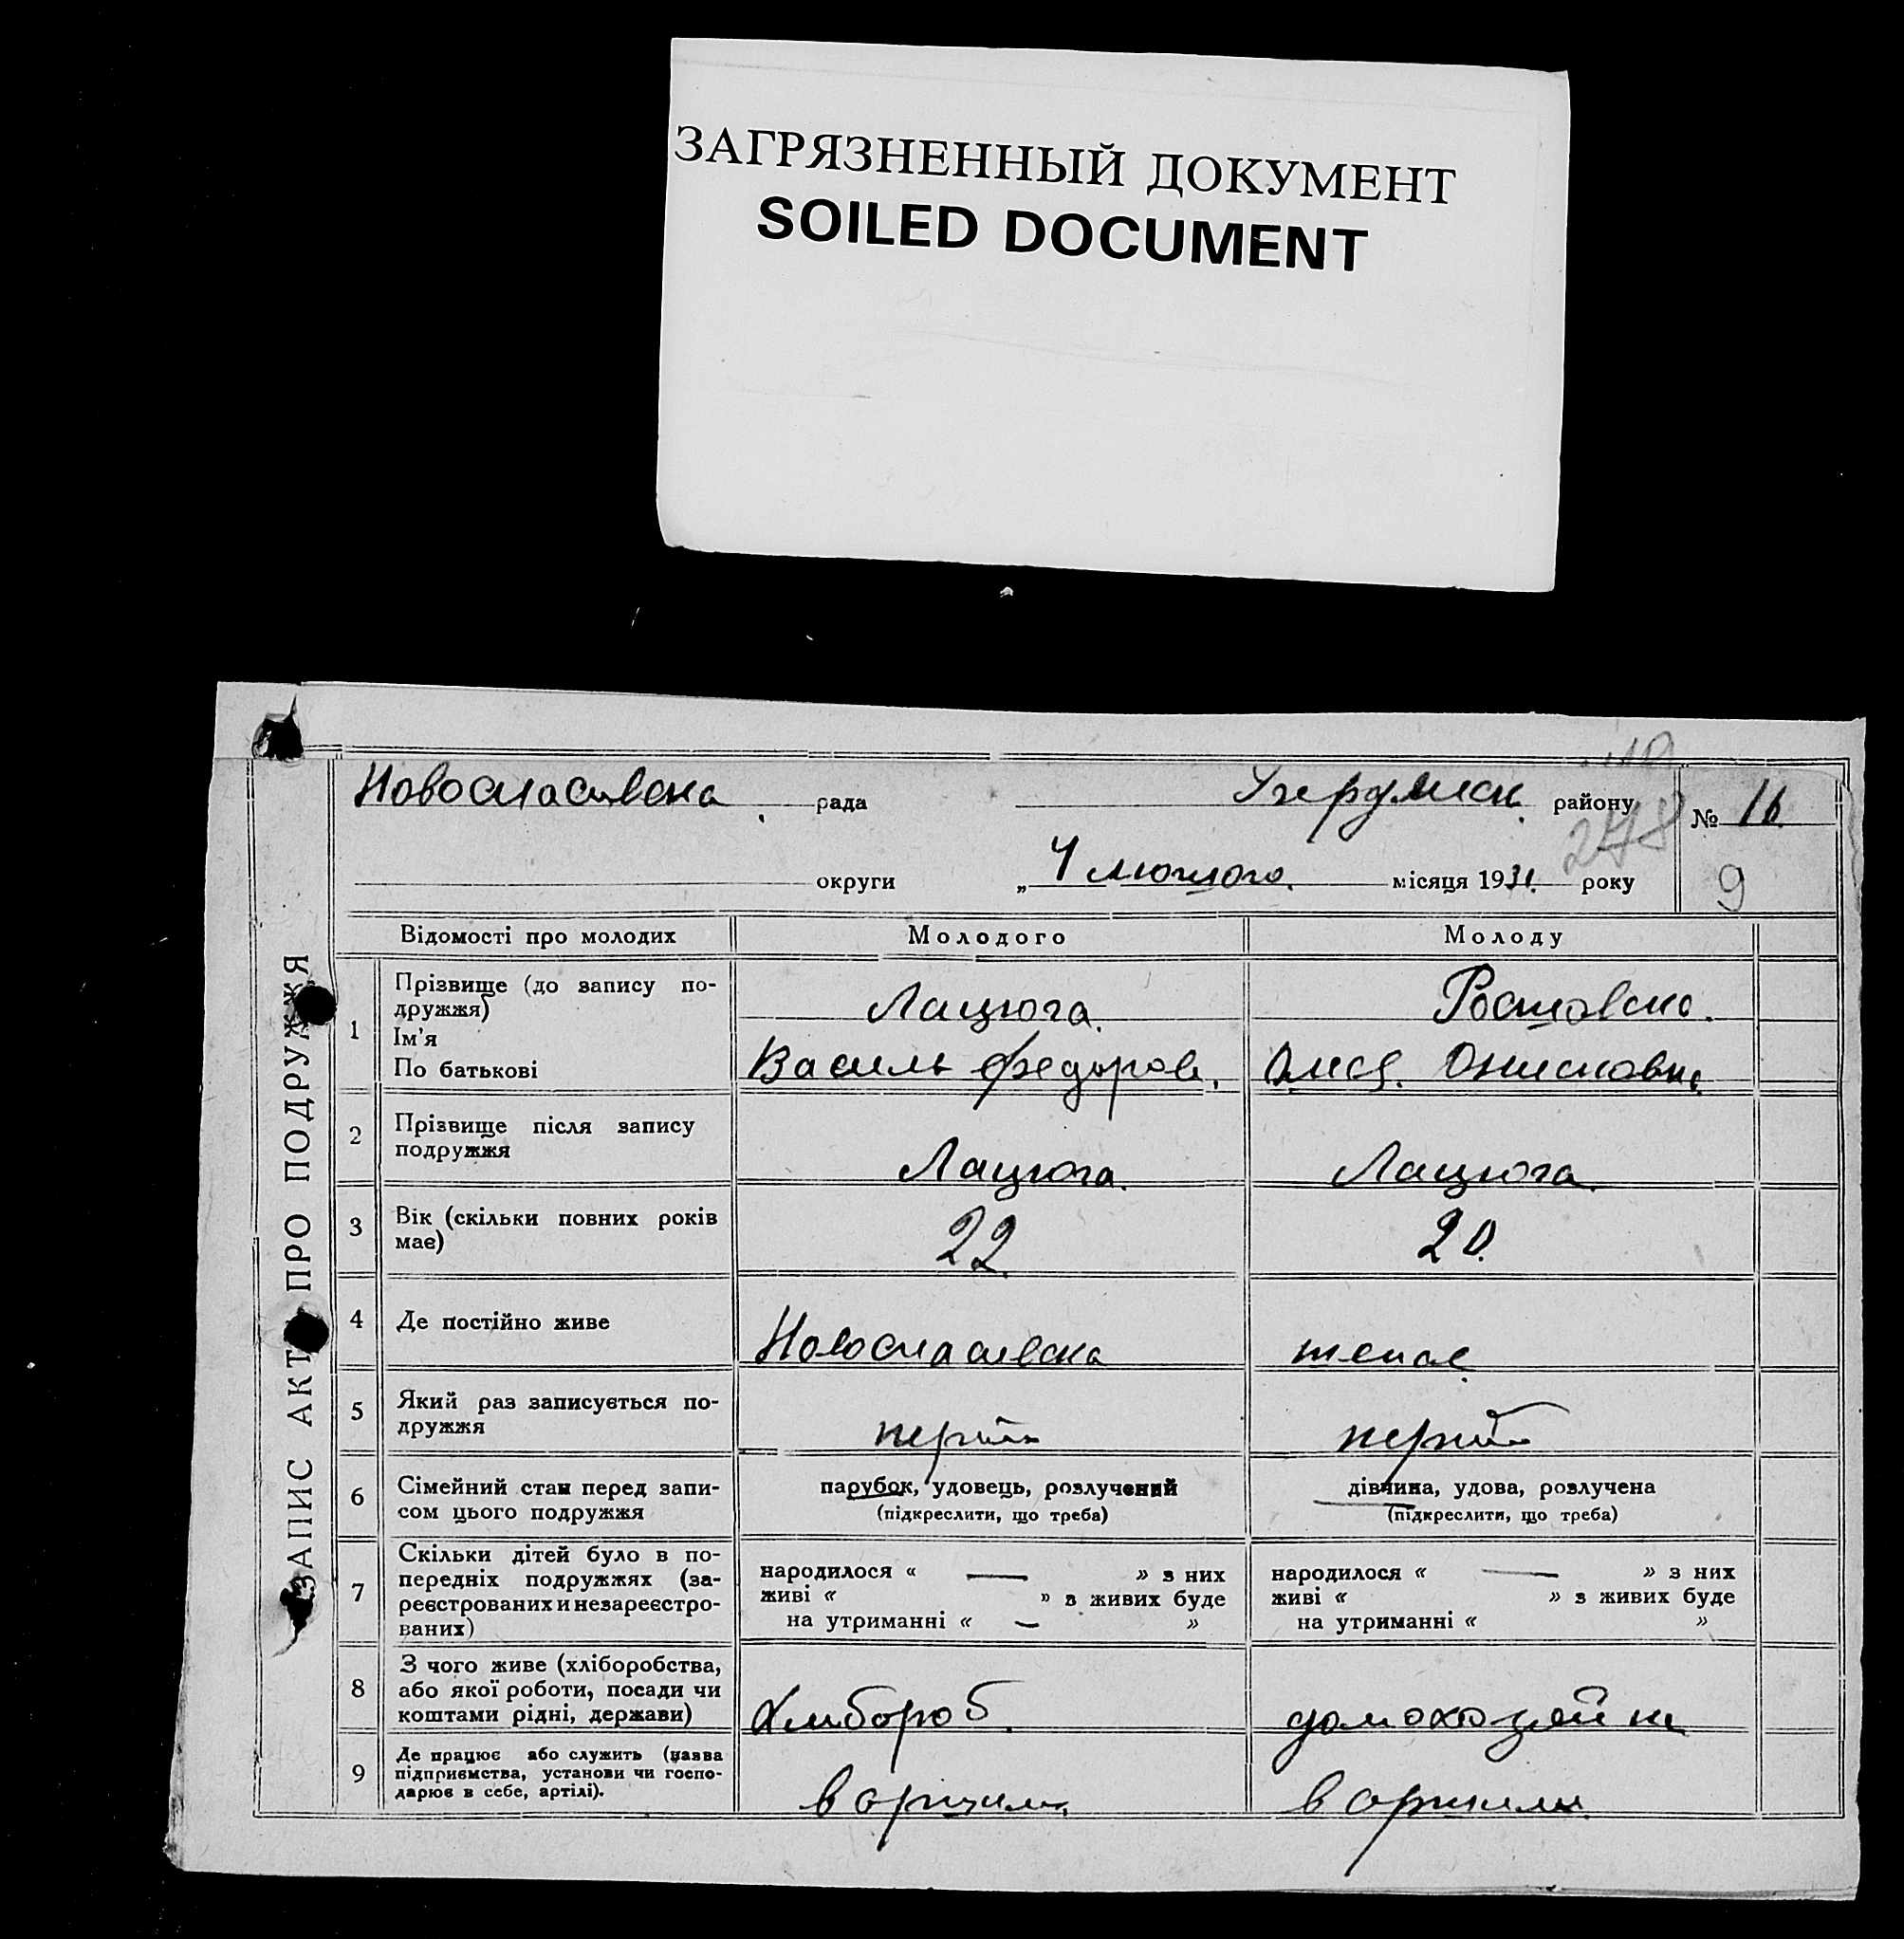 ЗАГРЯЗНЕННЫЙ ДОКУМЕНТ
SOILED DOCUMENT
ЗАПИС АКТ ПРО ПОДРУЖЖЯ
Новоспасівська рада району № 16
278
округи „ 4 лютого місяця 1931 року 9
Відомості про молодих Молодого Молоду
1 Прізвище (до запису по-
дружжя) Лацюга. Ростовська.
Ім'я
По батькові Василь Федоров. Олися.
2 Прізвище після запису
подружжя Лацюга. Лацюга.
3 Вік (скільки повних років
має) 22 20.
4 Де постійно живе Новоспасівска
5 Який раз записується по-
дружжя перший перший
6 Сімейний стан перед запи-
сом цього подружжя
парубок, удовець, розлучений дівчина, удова, розлучена
(підкреслити, що треба) (підкреслити, що треба)
7 Скільки дітей було в по-
передніх подружжях (за-
реєстрованих и незареєстро-
ваних)
народилося « — » з них народилося « — » з них
живі « » з живих буде живі « » з живих буде
на утриманні « — » на утриманні « »
8 З чого живе (хліборобства,
або якої роботи, посади чи
коштами рідні, держави) Хлибороб. домохозяйка
9 Де працює або служить (назва
підприємства, установи чи госпо-
дарює в себе, артілі). в артили. в артили.